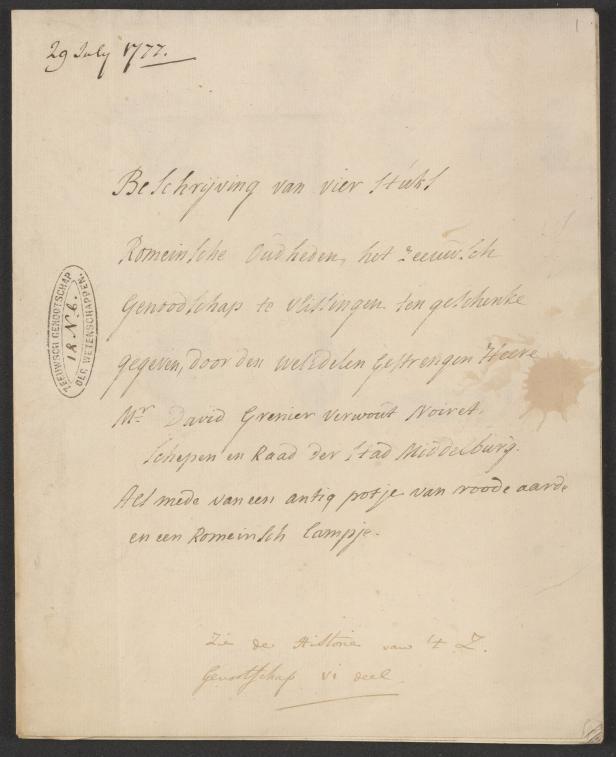 1
29 July 1777.
Beschrijving van vier stuks
Romeinsche Oudheden, het zeeuwsch
Genoodschap te Vlissingen ten geschenke
gegeven, door den weledelen gestrengen Heere
Mr. David Grenier Verwout Noiret.
Schepen en Raad der Stad Middelburg.
Als mede van een antiq potje van roode aarde
en een Romeinsch Lampje.
ZEEUWSCH GENOOTSCHAP
18 N. b.
DER WETENSCHAPPEN.
Zie de Historie van 't Z.
Genootschap VI deel.